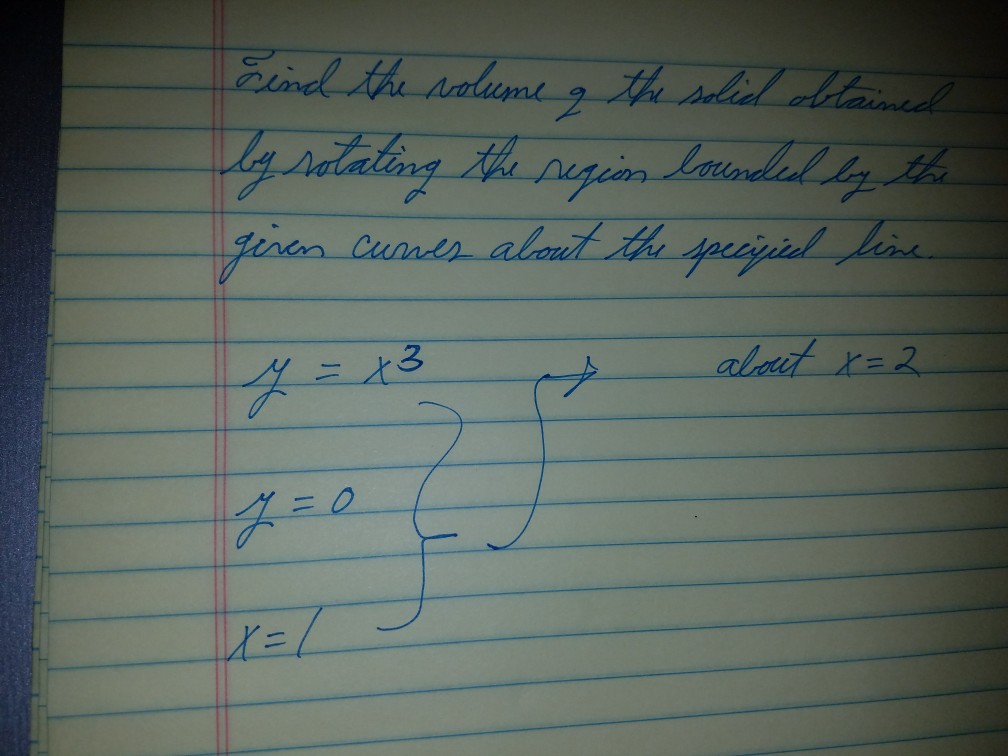 Find the volume of the solid obtained
by rotating the region bounded by the
given curves about the specified line.
y = x³ about x=2
y = 0
x = 1